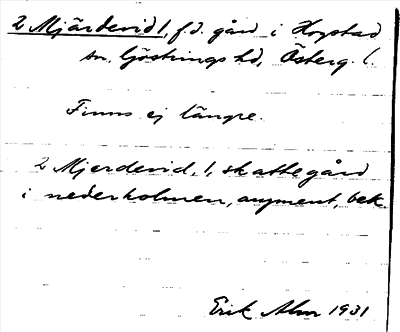 2 Mjärdevid 1, f.d. gård i Hogstad
sn. Göstrings hd, Österg. l.
Finns ej längre.
2 Mjerdevid, 1, skattegård
i nederholmen, augment, bek.
Erik Alm 1931